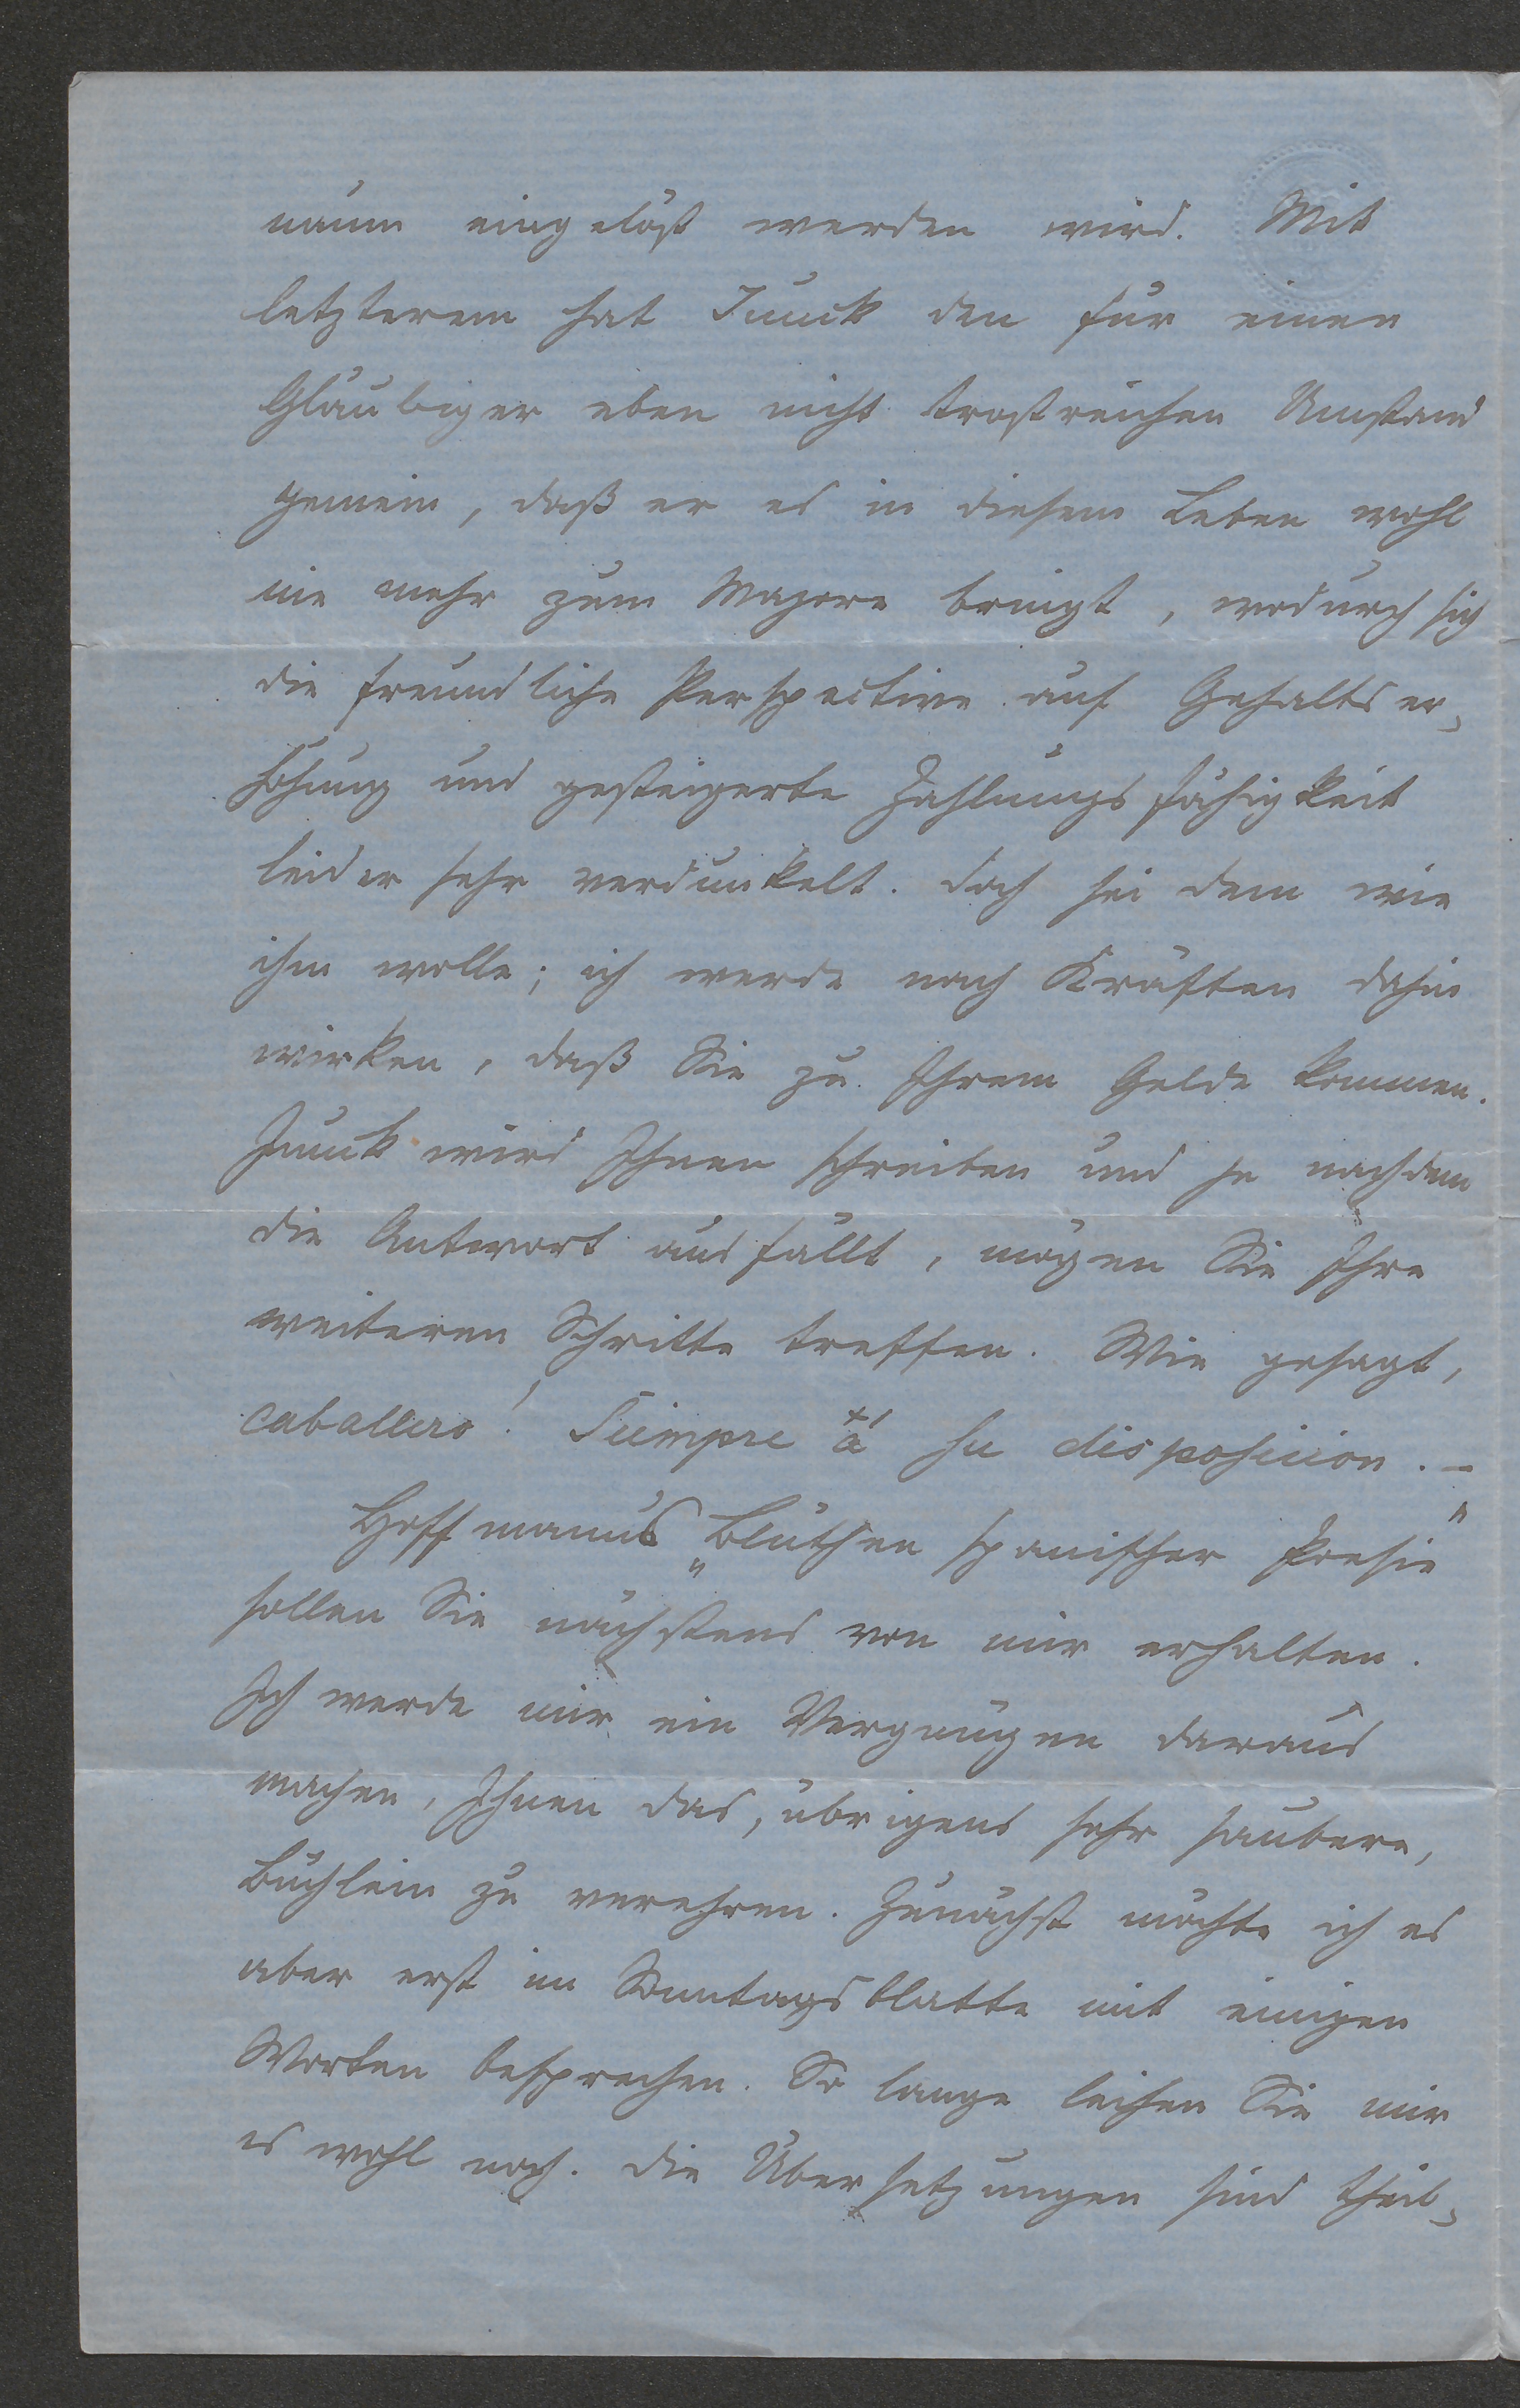 naum eingelöst werden wird. Mit
letzterem hat Junck den für einen
Gläubiger eben nicht trostreichen Umstand
gemein, daß er es in diesem Leben wohl
nie mehr zum Majore bringt, wodurch sich
die freundliche Perspective auf Gehaltser-
höhung und gesteigerte Zahlungsfähigkeit
leider sehr verdunkelt. Doch sei dem wie
ihm wolle; ich werde nach Kräften dahin
wirken, daß Sie zu Ihrem Gelde kommen.
Junck wird Ihnen schreiben und je nachdem
die Antwort ausfällt, mögen Sie Ihre
weiteren Schritte treffen. Wie gesagt,
caballero! Siempre á su disposicion. –
Hoffmanns „Blüthen spanischer Poesie"
sollen Sie nächstens von mir erhalten.
Ich werde mir ein Vergnügen daraus
machen, Ihnen das, übrigens sehr saubere,
Büchlein zu verehren. Zunächst möchte ich es
aber erst im Sonntagsblatte mit einigen
Worten besprechen. So lange leihen Sie mir
es wohl noch. Die Übersetzungen sind theil-